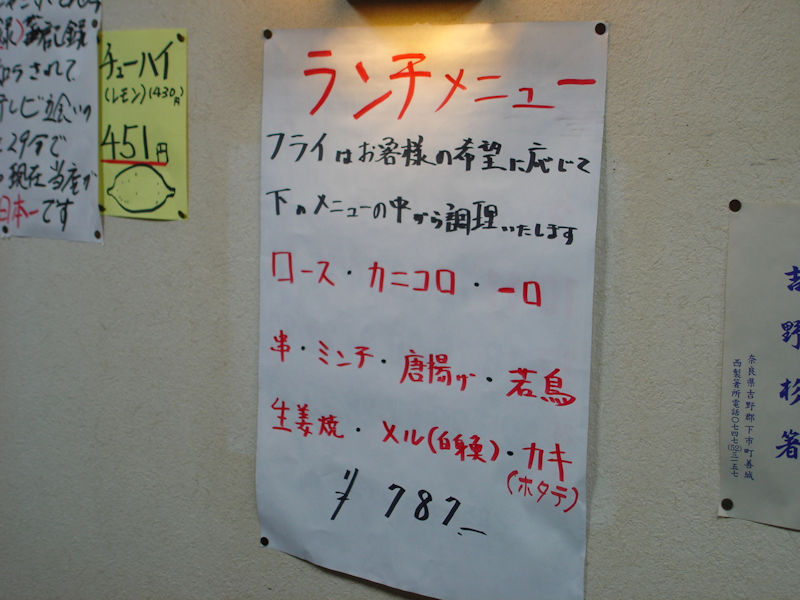 録)記録
されて
テレビ
29分で
現在当店が
日本一です
チューハイ
(レモン)(430円)
451円
ランチメニュー
フライはお客様の希望に応じて
下のメニューの中から調理いたします
ロース・カニコロ・一口
串・ミンチ・唐揚げ・若鳥
生姜焼・メル(白身)・カキ
(ホタテ)
¥787.—
吉野杉箸
奈良県吉野郡下市町善城
西製箸所電話〇七四七(52)三一五七